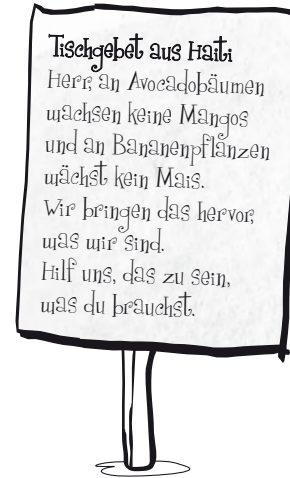 Tischgebet aus Haiti
Herr, an Avocadobäumen
wachsen keine Mangos
und an Bananenpflanzen
wächst kein Mais.
Wir bringen das hervor,
was wir sind.
Hilf uns, das zu sein,
was du brauchst.